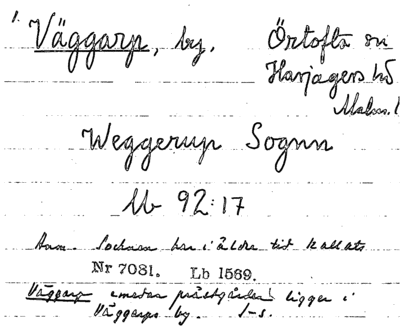 1. Väggarp, by. Örtofta sn
Harjagers hd
Malm. l
Weggerup Sognn
Lb 92:17
Anm. Socknen har i äldre tid kallats
Nr 7081. Lb 1569.
Väggarp emedan prästgården ligger i
Väggarps by. S-s.